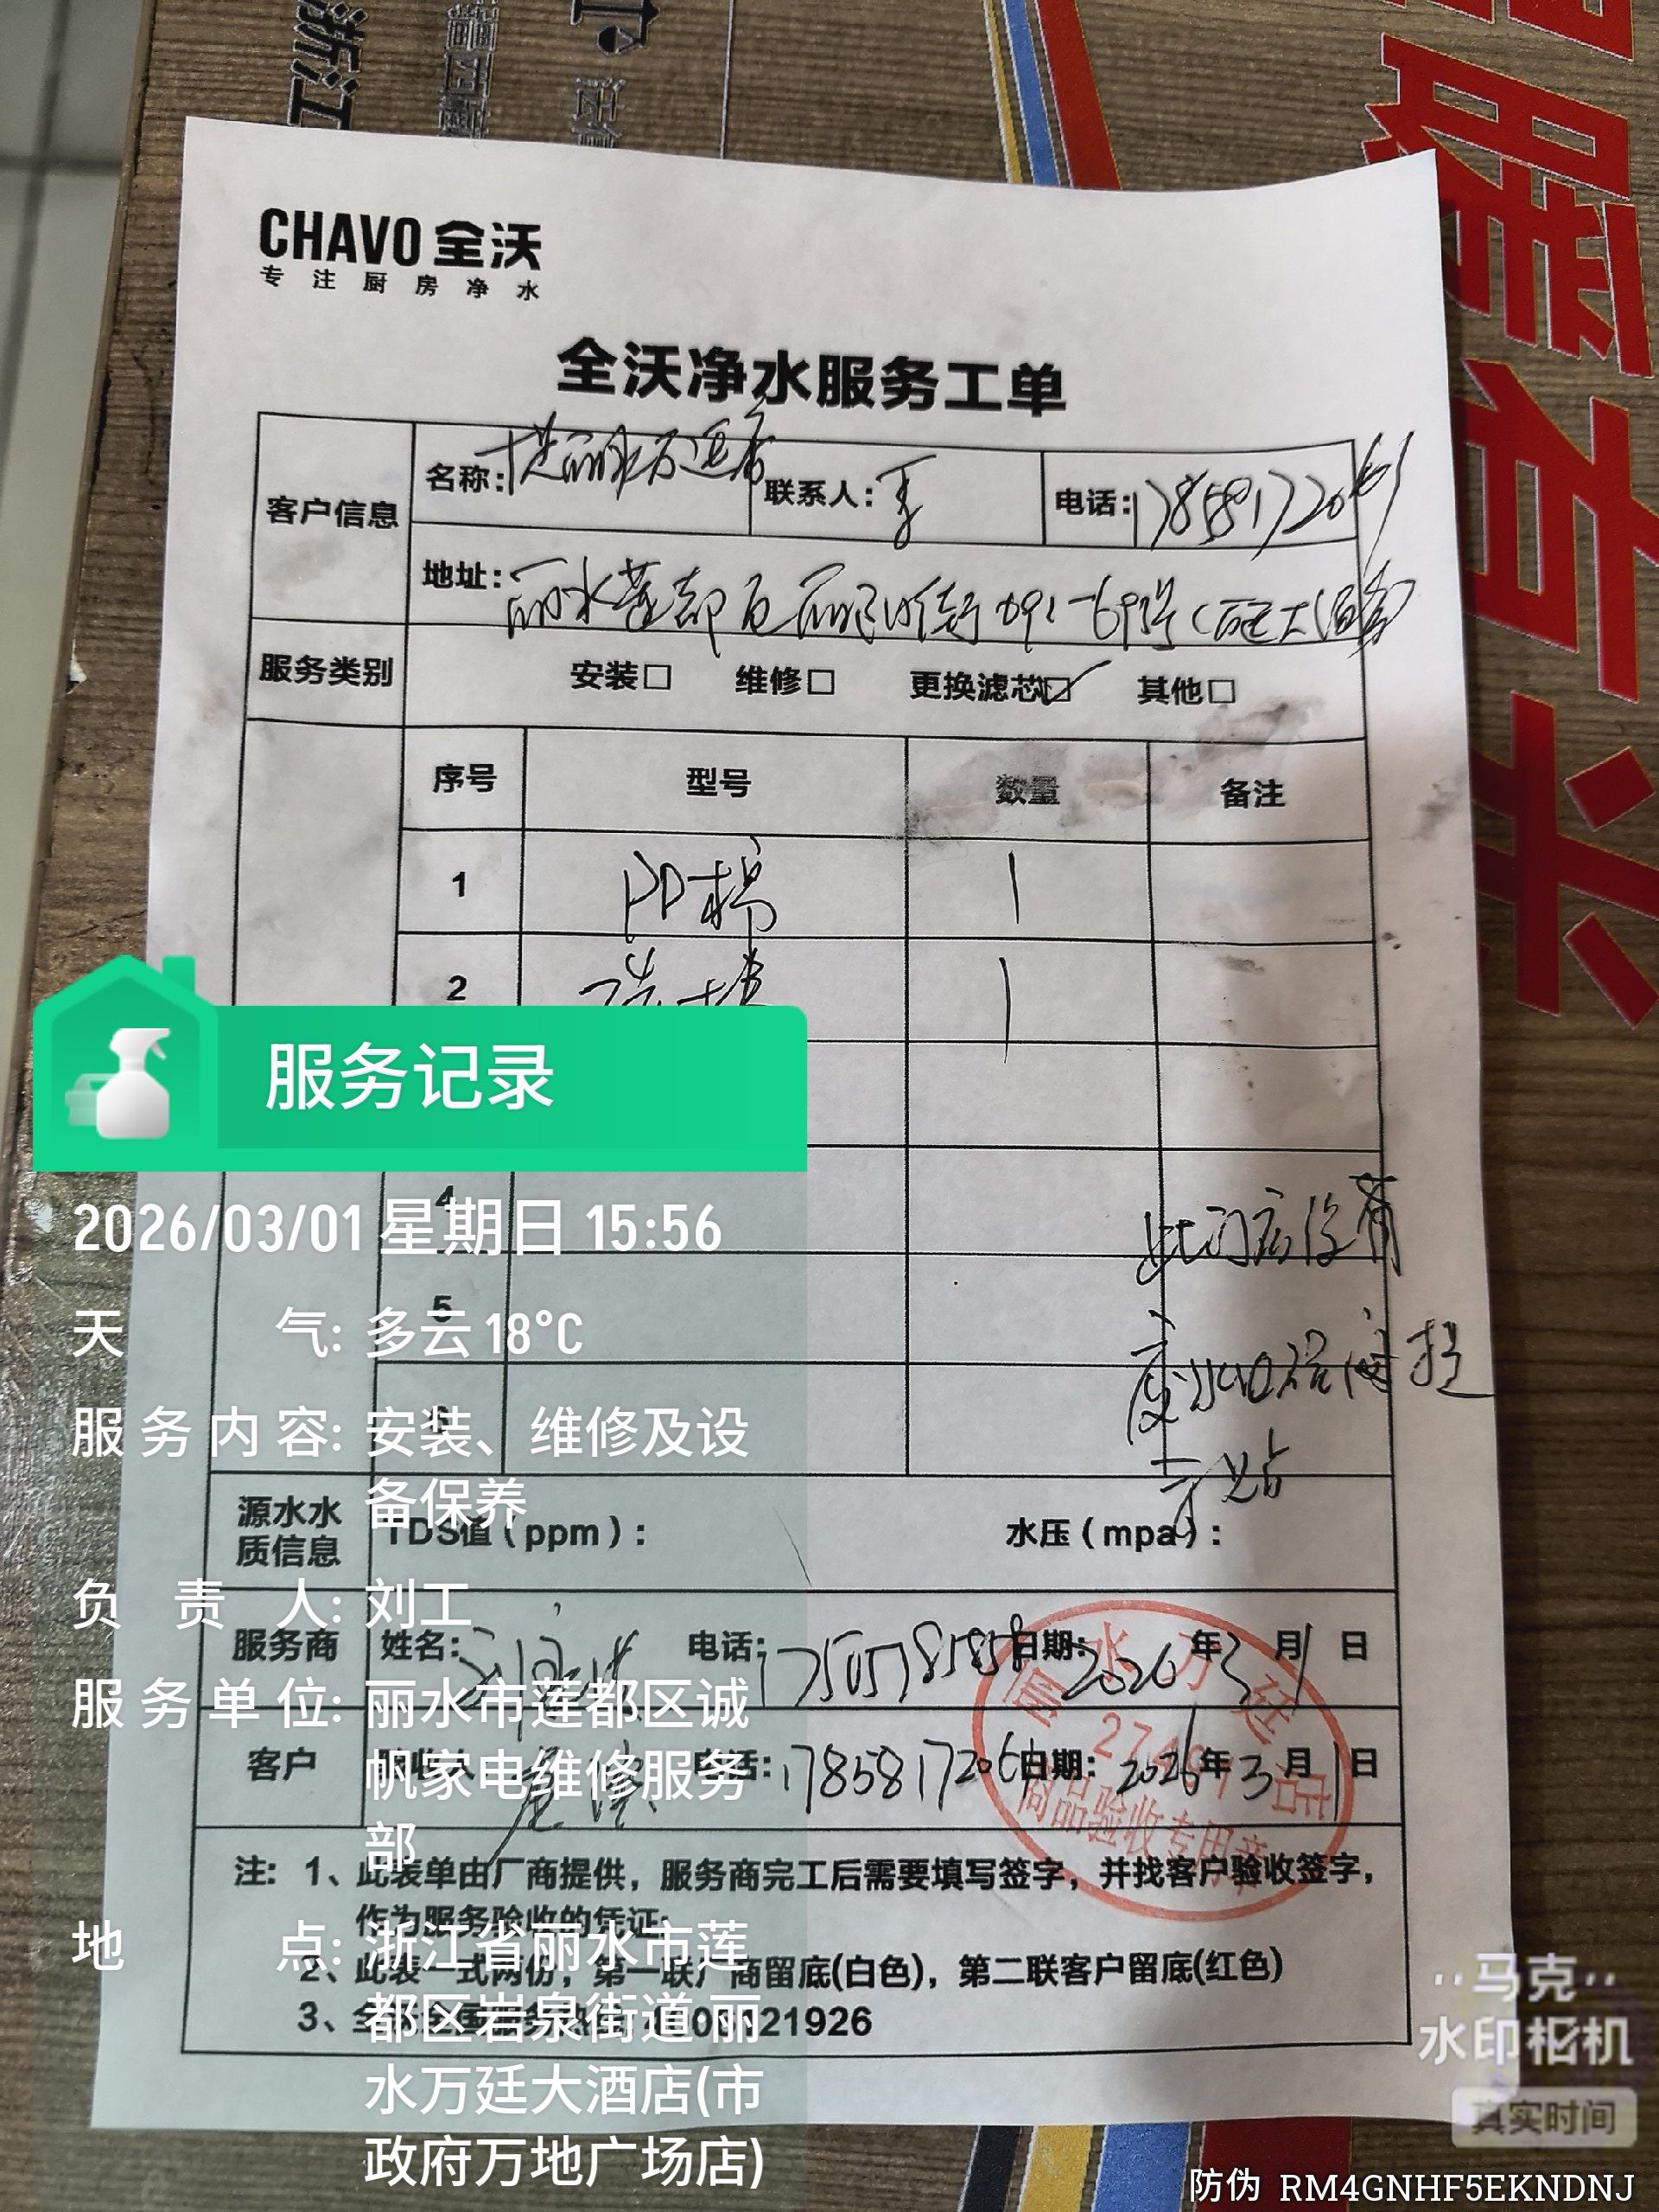 浙江
CHAVO 全沃
专注厨房净水
全沃净水服务工单
客户信息
名称: 丽水万廷店
联系人: 李
电话: 17858172061
地址: 丽水莲都区丽阳街691-699号(万廷大酒店)
服务类别
安装□ 维修□ 更换滤芯☑ 其他□
序号 型号 数量 备注
1 PP棉 1
2 1
服务记录
4
5
6
此门店没有
废水口
源水水质信息 TDS值(ppm): 水压(mpa):
服务商 姓名: 电话: 17505785858 日期: 2026年3月1日
客户 电话: 17858172061 日期: 2026年3月1日
丽水万廷
店
商品验收专用章
注: 1、此表单由厂商提供,服务商完工后需要填写签字,并找客户验收签字,
作为服务验收的凭证;
2、此表一式两份,第一联厂商留底(白色),第二联客户留底(红色)
3、
2026/03/01 星期日 15:56
天气: 多云 18°C
服务内容: 安装、维修及设
备保养
负责人: 刘工
服务单位: 丽水市莲都区诚
帆家电维修服务
部
地点: 浙江省丽水市莲
都区岩泉街道丽
水万廷大酒店(市
政府万地广场店)
马克
水印相机
真实时间
防伪 RM4GNHF5EKNDNJ